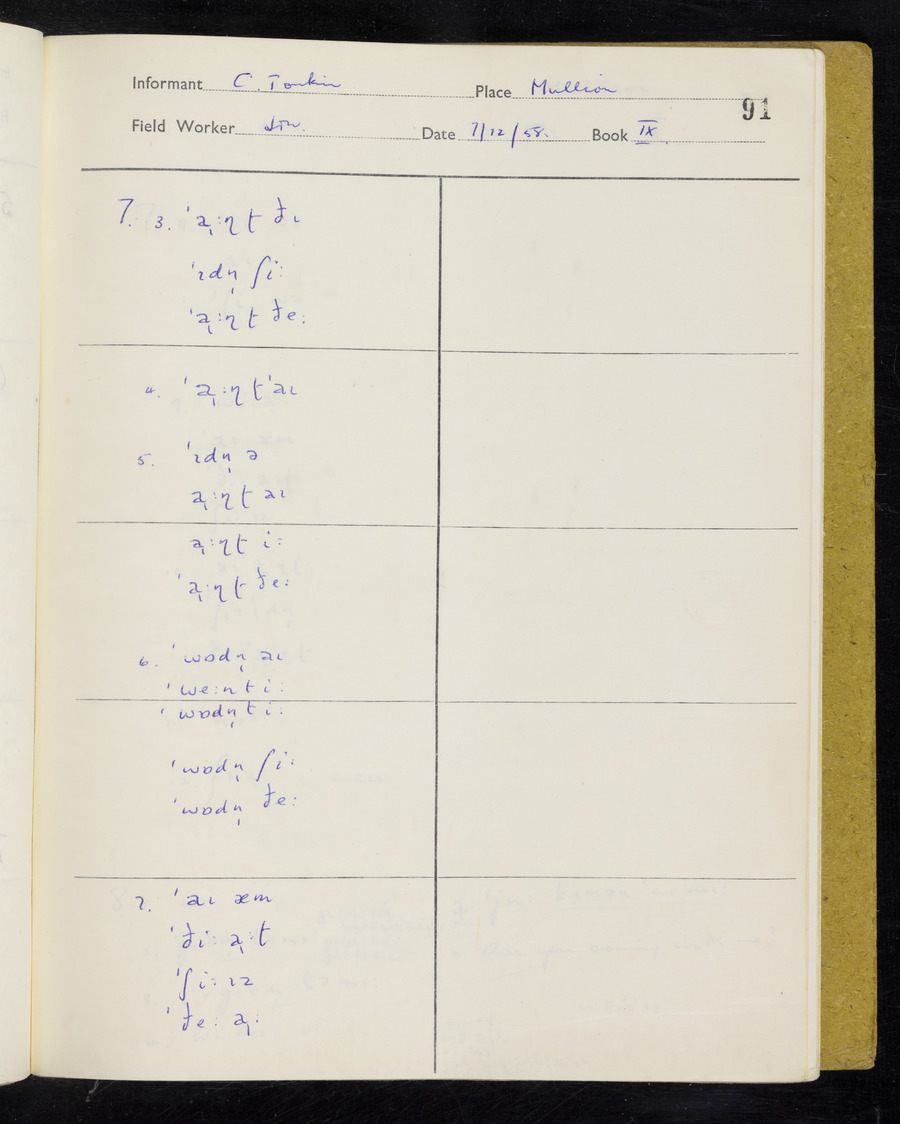 Informant C. Tonkin Place Mullion
91
Field Worker Date 7/12/58. Book IX
7. 3. ˈa̢ːɳt ðɪ
ˈɪdn̩ ʃiː
ˈa̢ːɳt ðeː
4. ˈa̢ːɳtˈaɪ
5. ˈɪdn̩ ə
a̢ːɳt aɪ
a̢ːɳt iː
ˈa̢ːɳt ðeː
6. ˈwɒdn̩ aɪ
ˈweːnt iː
ˈwɒdn̩t iː
ˈwɒdn̩ ʃiː
ˈwɒdn̩ ðeː
7. ˈaɪ æm
ˈðiː a̢ːt
ˈʃiː ɪz
ˈðeː a̢ː